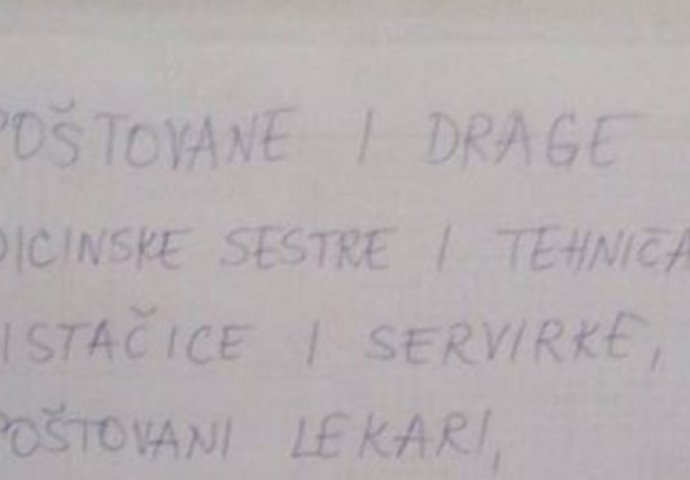 POŠTOVANE I DRAGE
DICINSKE SESTRE I TEHNIČA
ISTAČICE I SERVIRKE,
POŠTOVANI LEKARI,